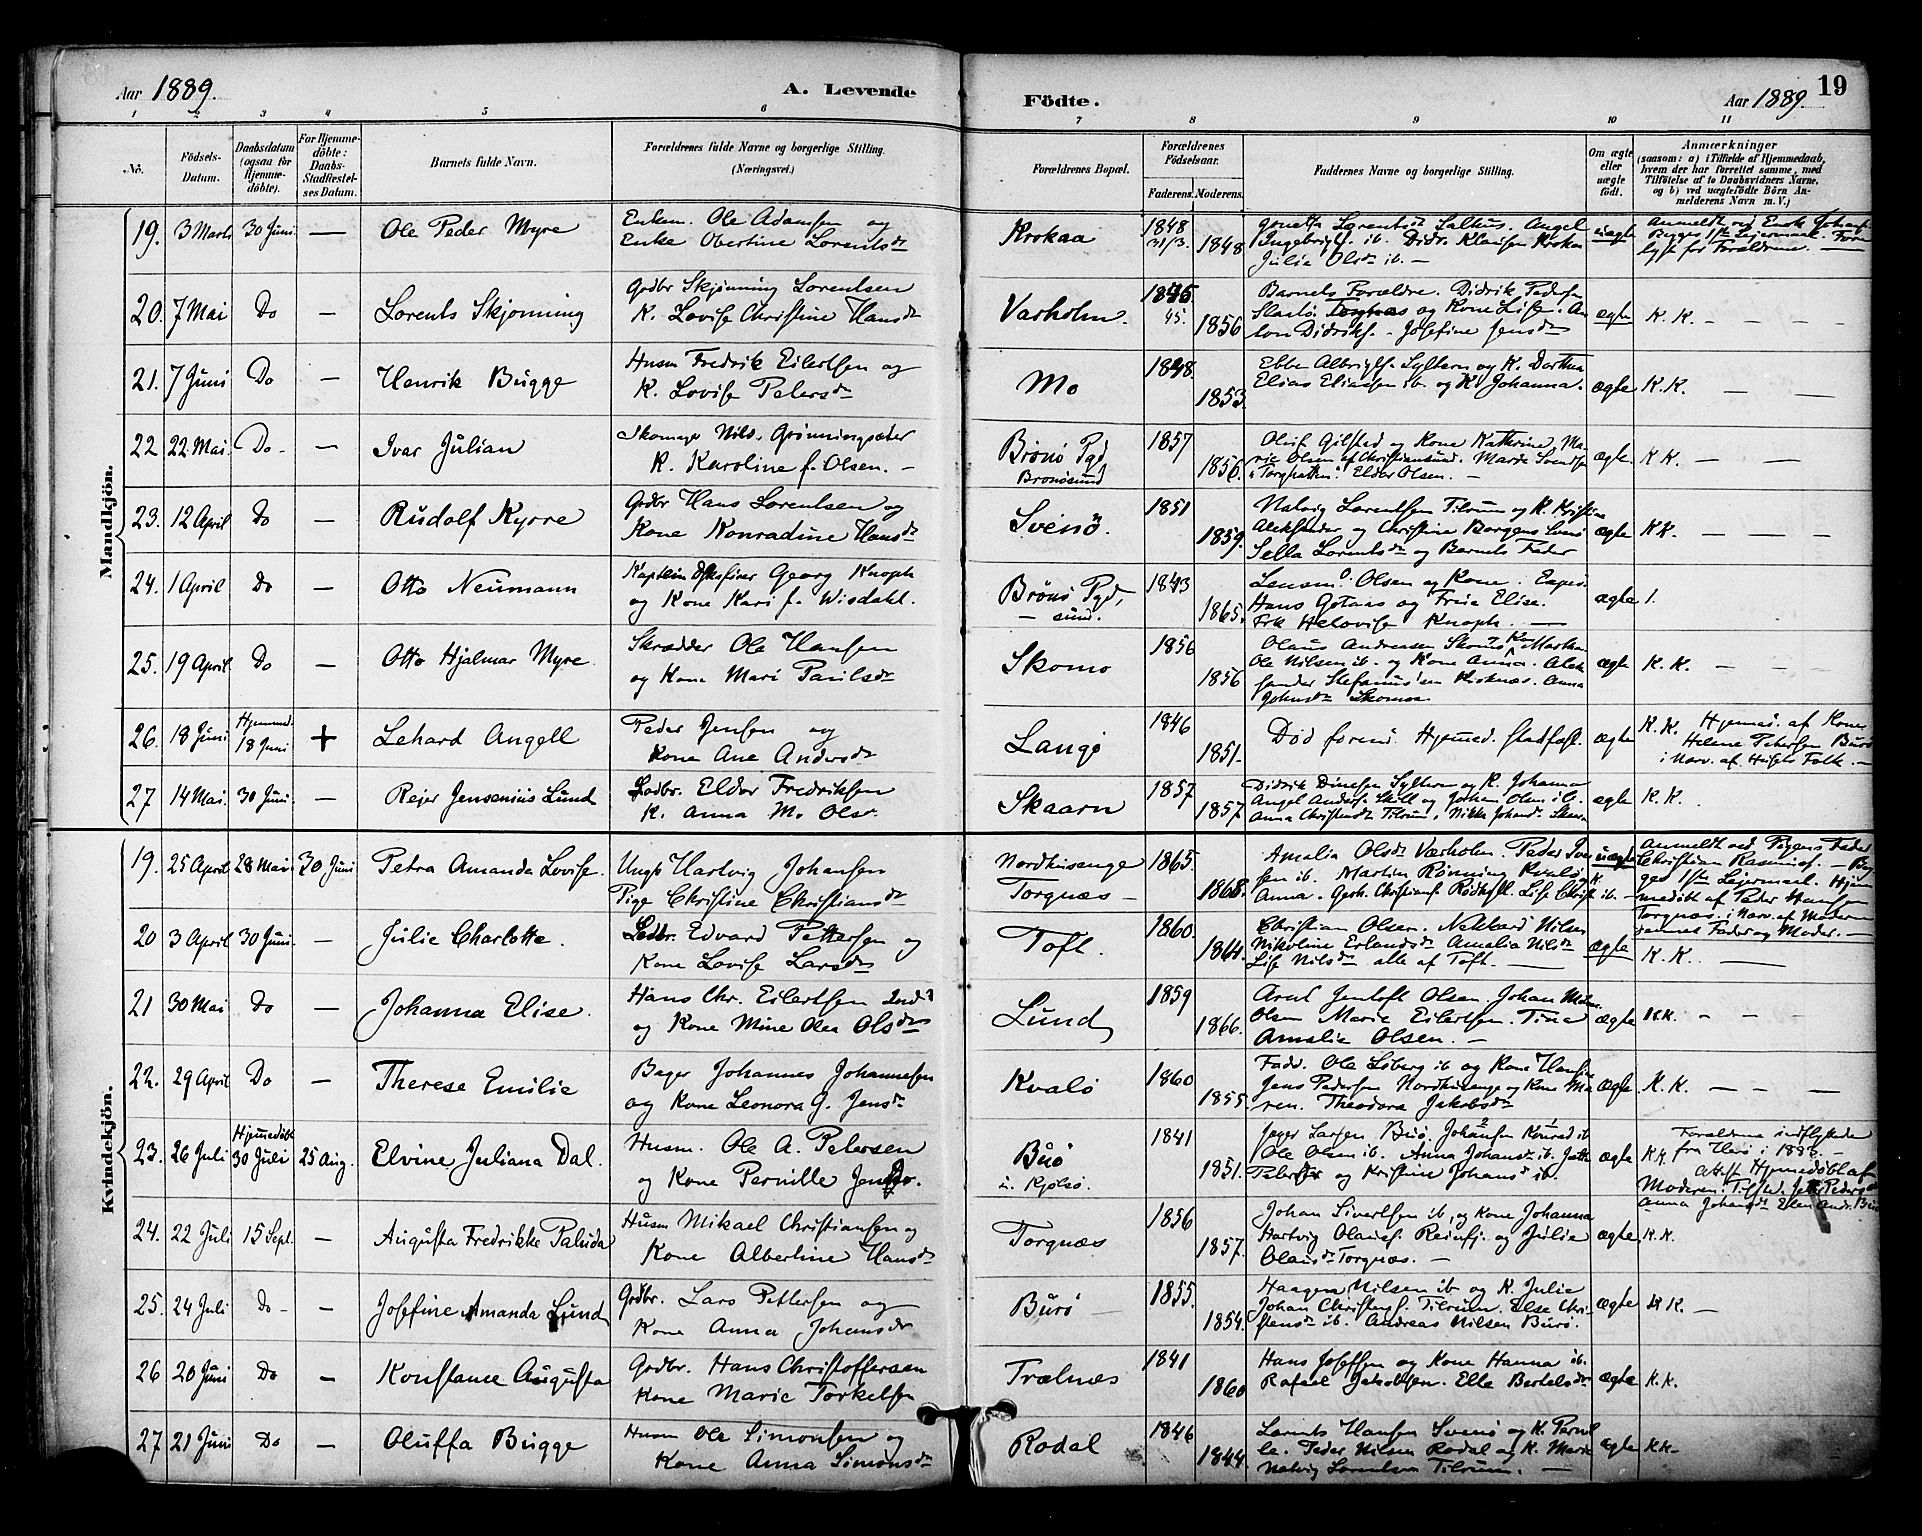 Aar 1889.
A. Levende
Födte.
Aar 1889.
19
1 2 3 4 5 6 7 8 9 10 11
No.
Födsels-
Datum.
Daabsdatum
(ogsaa for
Hjemme-
döbte).
For Hjemme-
döbte:
Daabs-
Stadfæstel-
ses Datum.
Barnets fulde Navn.
Forældrenes fulde Navne og borgerlige Stilling.
(Næringsvei.)
Forældrenes Bopæl.
Forældrenes
Födselsaar.
Faderens. Moderens.
Faddernes Navne og borgerlige Stilling.
Om ægte
eller
uægte
födt.
Anmærkninger
(saasom: a) i Tilfælde af Hjemmedaab,
hvem der har forrettet samme, med
Tilföielse af to Daabsvidners Navne,
og b) ved uægtefödte Börn An-
melderens Navn m. V.)
Mandkjön.
19. 3 Marts 30 Juni — Ole Peder Myre
Enkem. Ole Adamsen og
Enke Obertine Lorentsdr
Krokaa
1848
31/3.
1848
Ingebrigts. ib. Didr. Klausen Krokaa
Julia Olsdr ib. —
uægte
20. 7 Mai Do — Lorents Skjönning
Grdbr Skjönning Lorentsen
K. Lovise Christine Hansdr
Varholm.
1845
45.
1856
Barnets Forældre. Didrik Pedersen
og Kone Lise. An
ton Didriks. Josefine Jensdr
ægte K. K. — — —
21. 7 Juni Do — Henrik Bugge
Husm Fredrik Eilertsen og
K. Lovise Petersdr
Mo
1848.
1853.
Ebbe Albrigts. Sylthern og K. Dorthea
Elias Eliassen ib. og K. Johanna.
ægte K. K. — —
22 22 Mai. Do. — Ivar Julian
Skomager Nils. Grönningsæter
K. Karoline f. Olsen. —
Brönö Pgd
Brönösund
1857
1856.
Oluf Gilstad og Kone Kathrine, Ma-
rie Olsen af Christiansund. Marda Svendsen
"Torghatten". Elder Olsen. —
ægte. K K. — —
23. 12 April Do — Rudolf Kyrre
Grdbr Hans Lorentsen og
Kone Konradine Hansdr
Svenö.
1851
1859.
Natvig Lorentsen Tilrum og K. Kristine
Aleksander og Christine Borgens Svenö
Sella Lorentsdr og Barnets Fader
ægte KK. — — —
24. 1 April Do — Otto Neumann
Kaptein Georg Knoph
og Kone Kari f. Wisdahl.
Brönö Pgd,
— sund.
1843
1865.
Lensm. Olsen og Kone. Exped.
Hans Götaas og Frue Elise.
Frk Helovise Knoph. —
ægte 1.
25. 19 April Do — Otto Hjalmar Myre.
Skrædder Ole Hansen
og Kone Mari Paulsdr
Skomo
1856
1856
Olaus Andreassen
Ole Nilsen ib. og Kone Anna. Alek-
sander Stefanussen Kroknæs. Anna
Johnsdr Skomoe
ægte K. K. — — —
26. 18 Juni Hjemmed.
18 Juni + Lehard Angell
Peder Jensen og
Kone Ane Andersdr
Langö
1846
1851.
Död foren. Hjemmed. stadfæst.
ægte K. K. Hjemmed. af Kone
Helene Petersen Burö
i Nærv. af Husets Folk. —
27 14 Mai. 30 Juni. — Reier Jensenius Lund
Ledbr. Eldor Fredriksen
K. Anna M. Olsdr.
Skaarn
1857
1857.
Didrik Dinesen Sylthern og K. Johanna
Angel Anders. Skill og Johan Olsen ib.
Anna Christensdr Tilrum. Nikka Johansdr Skaarn
ægte K. K.
Kvindekjön.
19. 25 April 28 Mai 30 Juni Petra Amanda Lovise.
Ungk Hartvig Johansen
Pige Christine Christiansdr
Nordhusenge
Torgnæs —
1865.
1868.
Amalia Olsdr Værholm. Peder Iver-
sen ib. Martin Rönning Kvalö
Anna. Gerh. Christians. Rödhoft. Lise Christ. ib.
uægte Anmeldt ved Pigens Fader
Christian Rasmus. — Beg-
ges 1ste Leiermaal. Hjem-
medöbt af Peder Hansen
Torgnæs. i Nærv. af Moderen
dennes Fader og Moder. —
20 3 April 30 Juni. — Julie Charlotte.
Ledbr. Edvard Pettersen og
Kone Lovise Larsdr
Toft.
1860.
1864.
Christian Olsen. Nekkard Nilsen
Nikoline Erlandsdr Amalia Nilsdr
Lise Nilsdr alle af Toft. —
ægte K. K. —
21 30 Mai Do — Johanna Elise.
Hans Chr. Eilertsen Inds
og Kone Mine Olea Olsdr
Lund
1859
1866.
Arnt Jentoft Olsen. Johan
Olsen Marie Eilertsen. Tina
Amalie Olsen. —
ægte KK. — — —
22. 29 April Do — Therese Emilie
Bager Johannes Johannesen
og Kone Leonora G. Jensdr
Kvalö
1860
1855.
Fadr. Ole Söberg ib og Kone Hansine
Jens Pedersen Nordhusenge og Kone Ma-
ren. Theodora Jakobsdr
ægte. K. K. — — —
23. 26 Juli Hjemmedöbt
30 Juli 25 Aug. Elvine Juliana Dal.
Husm. Ole A. Petersen
og Kone Pernille Jensdr.
Burö
u. Kjölsö.
1841
1851.
Jæger Larsen Burö. Johansen Konrad ib
Ole Olsen ib. Anna Johansdr ib. Jette
Petersdr og Kristine Johansdr ib.
ægte K K. Forældrene indflyttede
fra Herö i 1883. —
Attest Hjemmedöbt af
Moderen: Tilst. Jette Pedersdr
Anna Johansdr Ellen Andr. Burö
24. 22 Juli 15 Sept. — Augusta Fredrikke Paluda
Husm Mikael Christiansen og
Kone Albertine Hansdr
Torgnæs
1856
1857.
Johan Sivertsen ib, og Kone Johanna
Hartvig Olaus. Reinfj. og Julie
Olausdr Torgnæs. —
ægte. K. K.
25. 24 Juli Do — Josefine Amanda Lund
Grdbr. Lars Pettersen og
Kone Anna Johansdr
Burö
1855.
1854.
Haagen Nilsen ib og K. Julie
Johan Christens. Tilrum. Else Chri-
stensdr ib. Andreas Nilsen Burö.
ægte K K. —
26 20 Juni Do — Konstance Augusta
Grdbr. Hans Christoffersen
Kone Marie Torkelsen
Trælnæs
1841
1860
Hans Josefsen og Kone Hanna ib.
Rafael Jakobsen. Elle Bertelsdr
ægte K.K.
27 21 Juni Do — Oluffa Bugge
Husm Ole Simonsen og
Kone Anna Simonsdr
Rodal
1846
1844.
Lorents Hansen Svenö og K. Pernil-
le. Peder Nilsen Rodal og K. Marie
Natvig Lorentsen Tilrum. —
ægte KK.